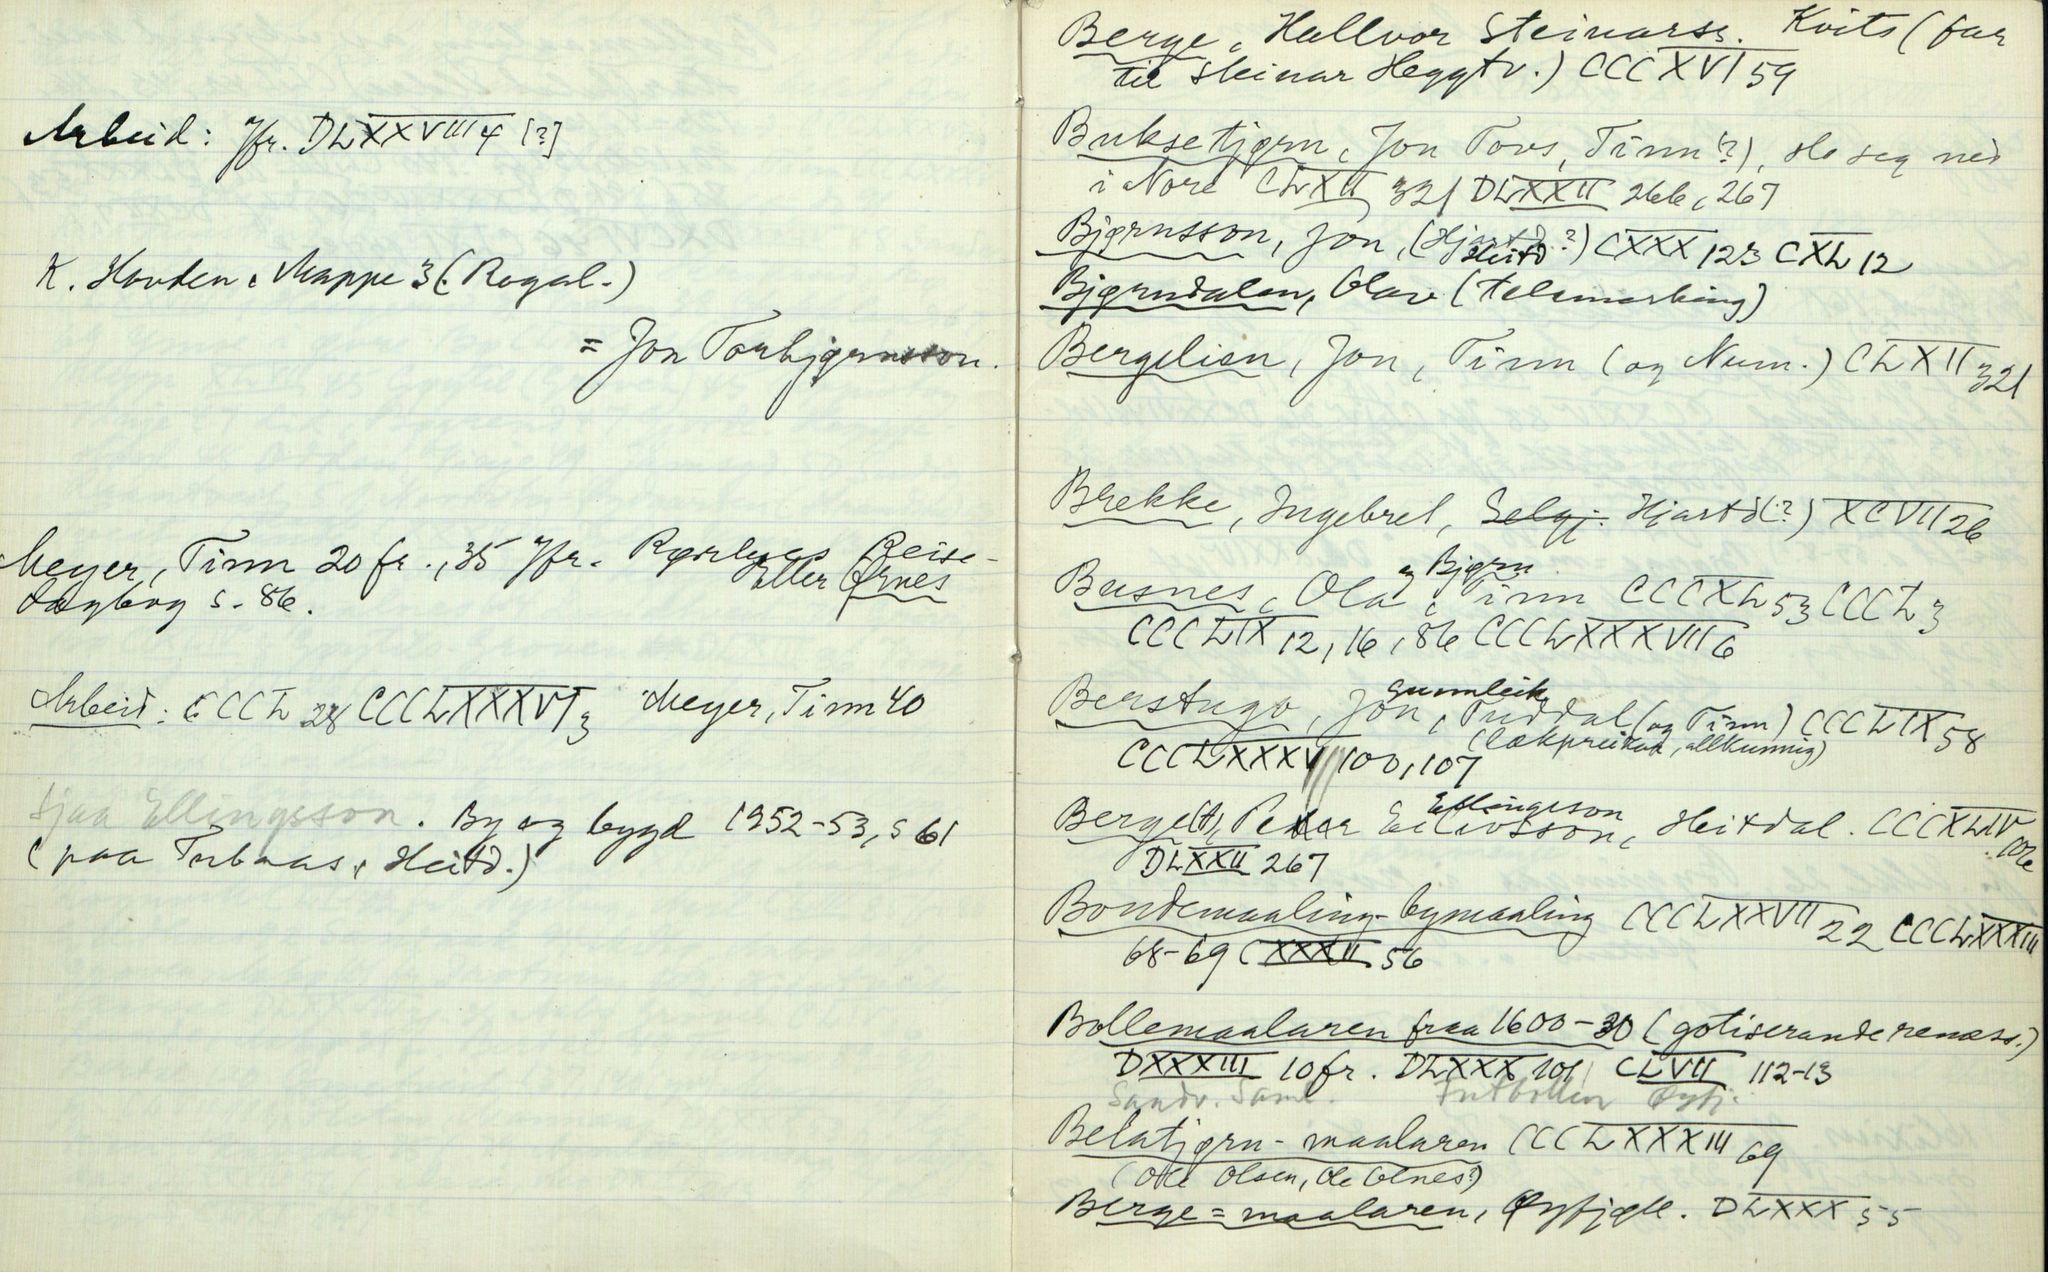 Arbeid: Jfr. DLXXVIII 4 [?]
K. Hovden, Mappe 3 (Rogal.)
= Jon Torbjørnsson.
Meyer, Tinn 20 fr., 35 Jfr. Rørbyes Reise-
Eller Ørnes
dagbog s. 86.
Arbeid: CCCL 28 CCCLXXXVI 3 Meyer, Tinn 40
Sjaa Ellingsson. By og bygd 1952-53, s 61
(paa Tubaas, Heitd.)
Berge, Hallvor Steinarss. Kvits (far
til Steinar Heggtv.) CCCXVI 59
Buksetjørn, Jon Tovs, Tinn (?), slo seg ned
i Nore CLXII 321 DLXXII 266, 267
Bjørnsson, Jon, (Hjartd.?) CXXX 123 CXL 12
Heitd
Bjørndalen, Olav (telemarking)
Bergelien, Jon, Tinn (og Num.) CLXII 321
Brekke, Ingebrel, Selgj. Hjartd(?) XCVII 26
og Bjørn
Busnes, Ola, Tinn CCCXL 53 CCCL 3
CCCLIX 12, 16, 86 CCCLXXXVII 6
Gunnleik
Berstugo, Jon, Tuddal (og Tinn) CCCLIX 58
(lekpreikar, allkunnig)
CCCLXXXV 100, 107
Ellingsson
Berge(t), Petter Eilivsson, Heitdal. CCCXLIV 106
DLXXII 267
Bondemaaling-bymaaling CCCLXXVII 22 CCCLXXXIII
68-69 CXXXII 56
Bollemaalaren fraa 1600-30 (gotiserande renæss.)
DXXXIII 10 fr. DLXXX 101 CLVII 112-13
Sandv. Saml. Futbollen Øyfj.
Belatjørn-maalaren CCCLXXXIII 69
(Ole Olsen, Ole Olnes?)
Berge=maalaren, Øyfjell. DLXXX 55